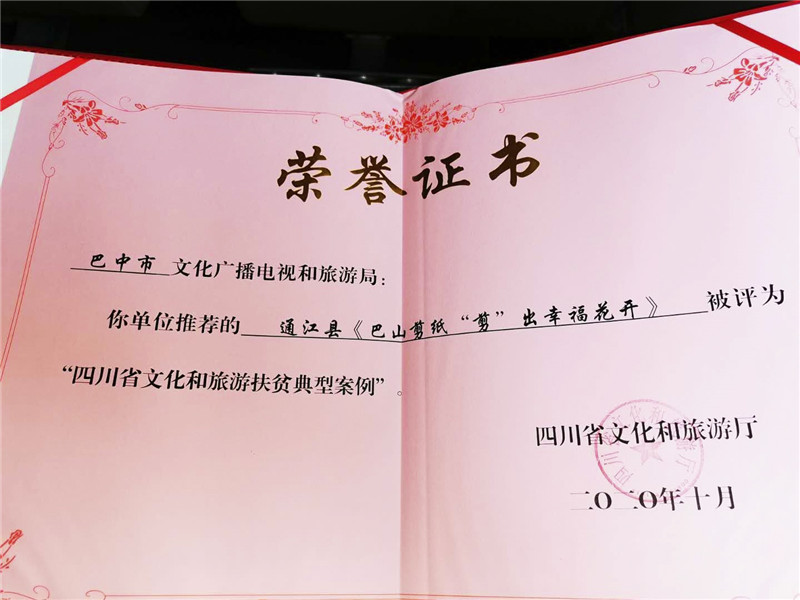 荣誉证书
巴中市 文化广播电视和旅游局：
你单位推荐的 通江县《巴山剪纸“剪”出幸福花开》 被评为
“四川省文化和旅游扶贫典型案例”。
四川省文化和旅游厅
二〇二〇年十月